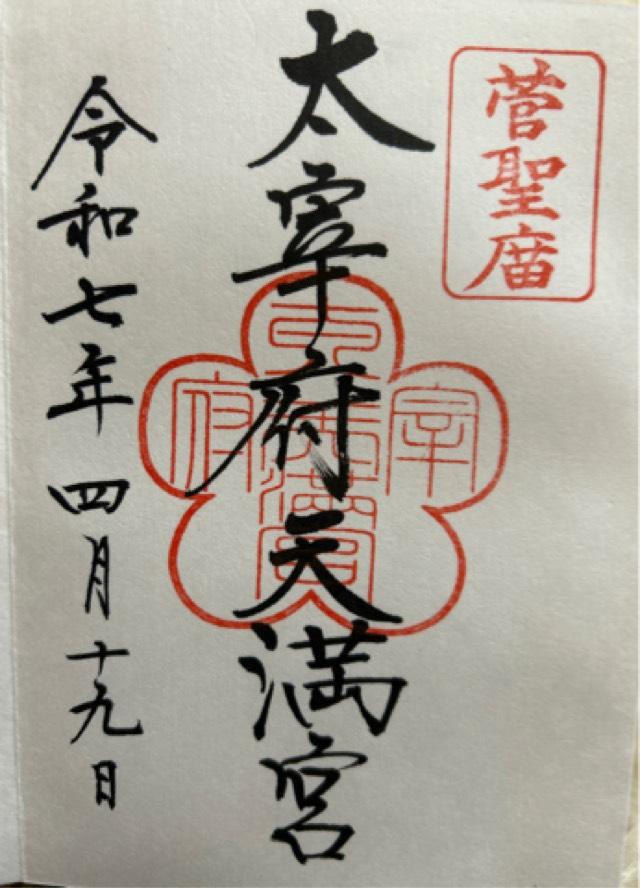 菅聖庿
太宰府天満宮
令和七年四月十九日